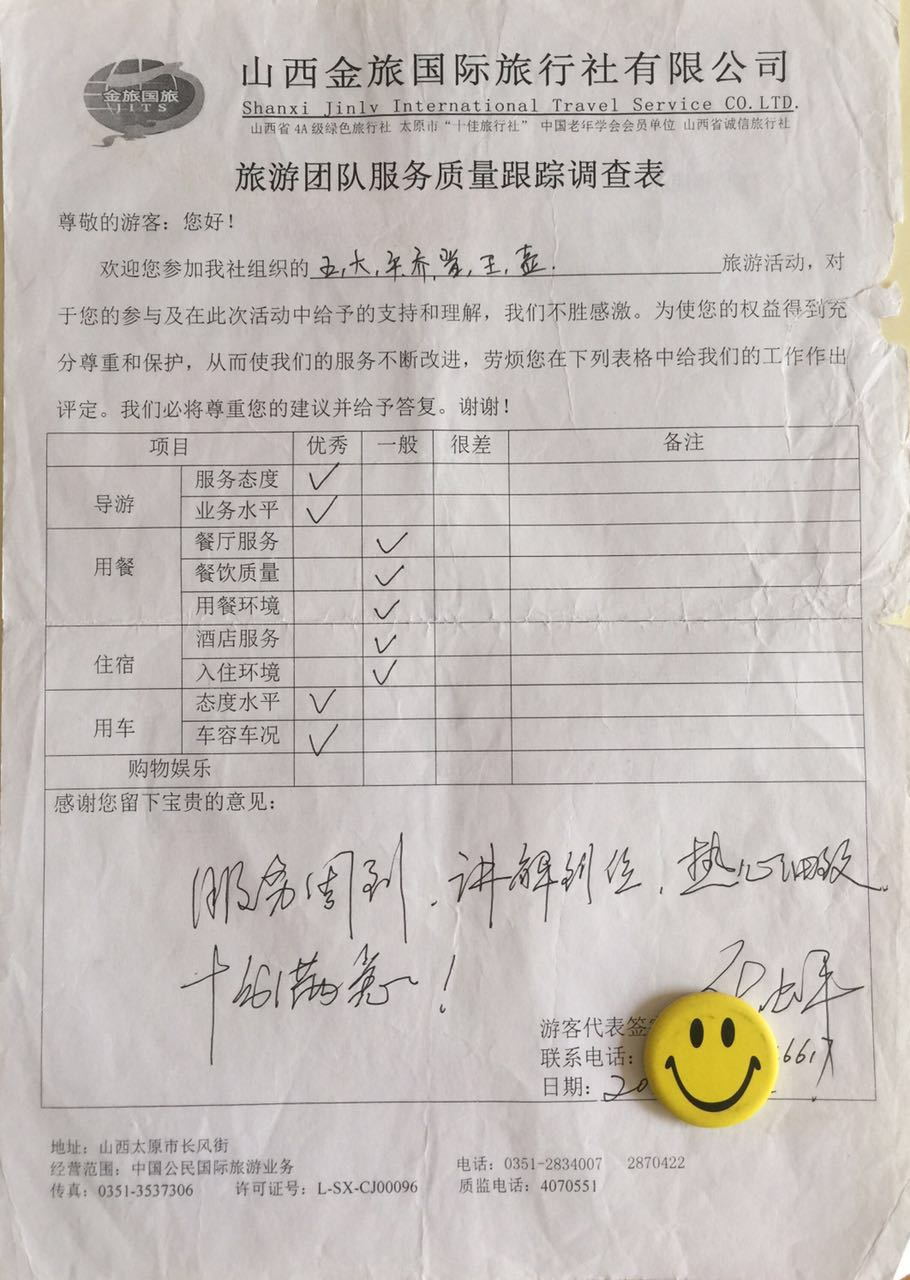 金旅国旅
JITS
山西金旅国际旅行社有限公司
Shanxi Jinlv International Travel Service CO.LTD.
山西省4A级绿色旅行社 太原市“十佳旅行社” 中国老年学会会员单位 山西省诚信旅行社
旅游团队服务质量跟踪调查表
尊敬的游客：您好！
欢迎您参加我社组织的五,大,平,乔,王,壶.旅游活动，对
于您的参与及在此次活动中给予的支持和理解，我们不胜感激。为使您的权益得到充
分尊重和保护，从而使我们的服务不断改进，劳烦您在下列表格中给我们的工作作出
评定。我们必将尊重您的建议并给予答复。谢谢！
项目 优秀 一般 很差 备注
导游 服务态度 ✓
业务水平 ✓
用餐 餐厅服务 ✓
餐饮质量 ✓
用餐环境 ✓
住宿 酒店服务 ✓
入住环境 ✓
用车 态度水平 ✓
车容车况 ✓
购物娱乐
感谢您留下宝贵的意见：
服务周到，讲解到位，热心细致
十分满意！
游客代表签
联系电话： 6617
日期：20
地址：山西太原市长风街
经营范围：中国公民国际旅游业务 电话：0351-2834007 2870422
传真：0351-3537306 许可证号：L-SX-CJ00096 质监电话：4070551